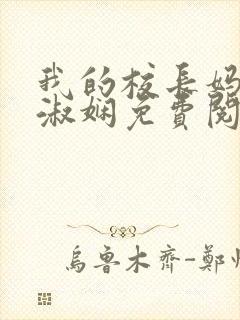 我的校长妈
淑娴免費閱
烏魯木齊-鄭州